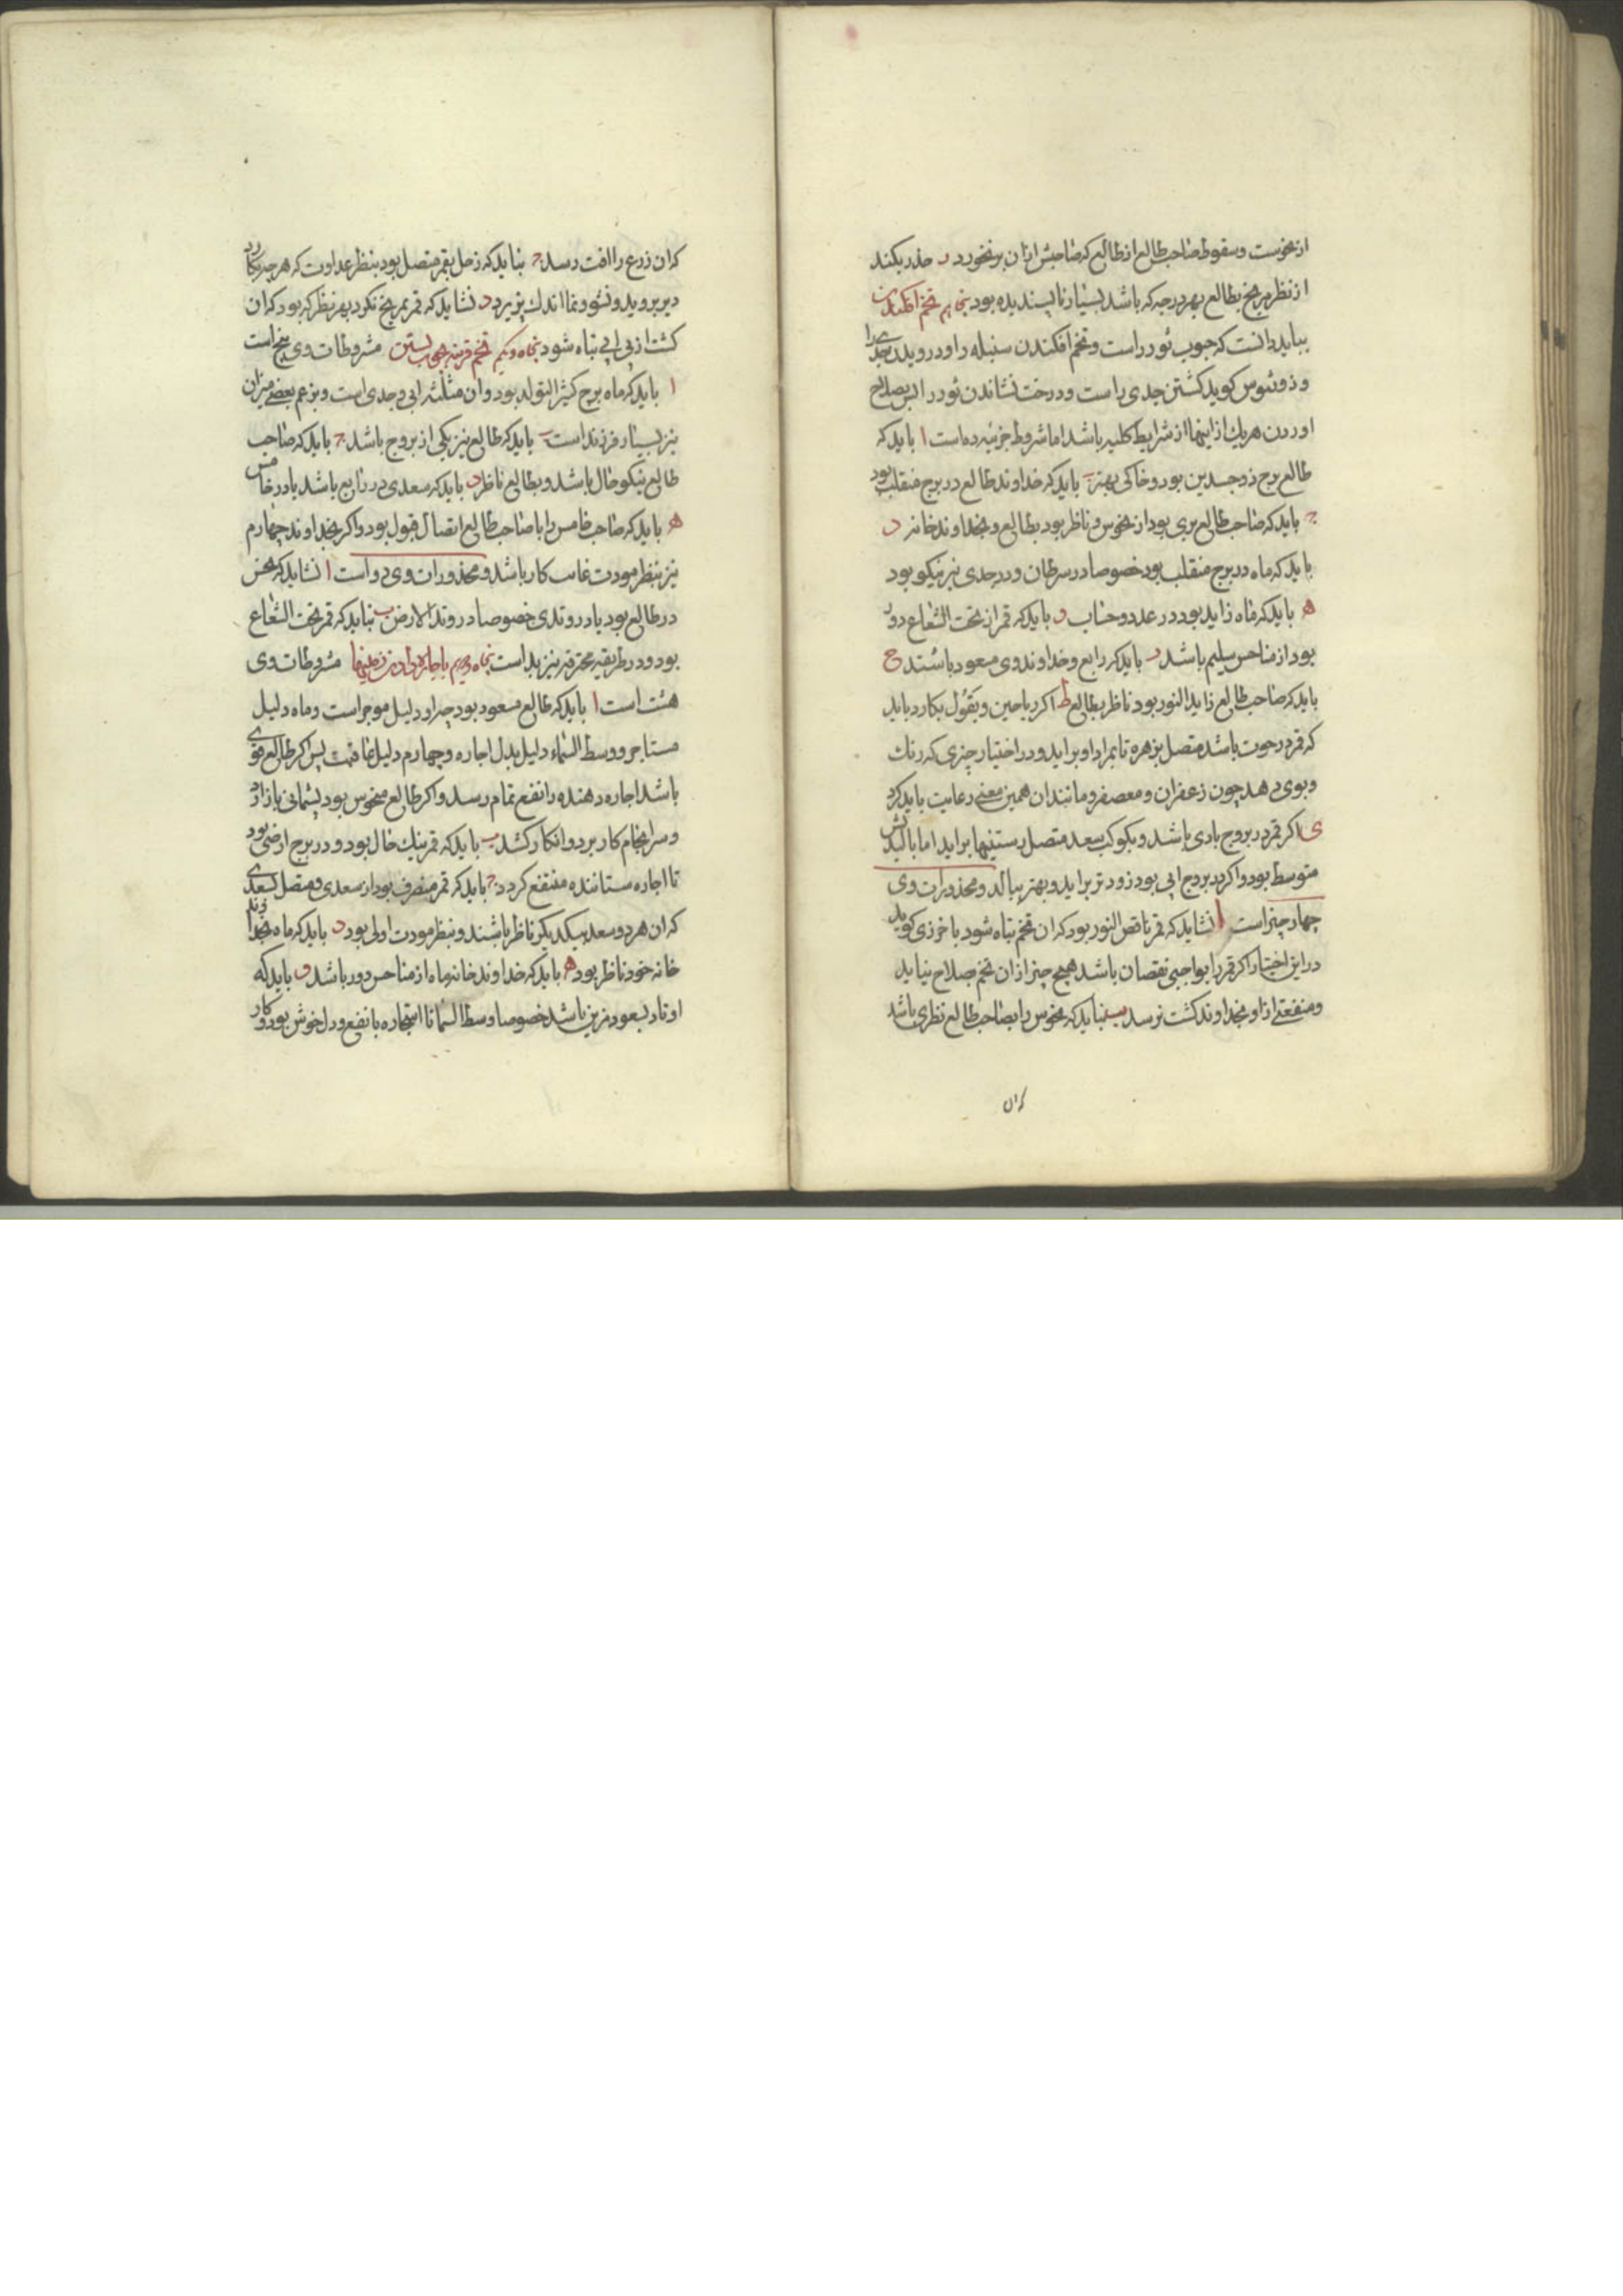 از نحوست و سقوط صاحب طالع از طالع که صاحبش ازان برنخورد د حذر بکند
از نظر مریخ بطالع بهر درجه که باشد بسیار ناپسندیده بود پنجاهم تخم افکندن
بباید دانست که جوب ثور راست و تخم افکندن سنبله را و درویدن جدی را
و ذوثئوس کوید کشتن جدی راست و درخت نشاندن ثور را پس بصلاح
اوردن هریک از اینها از شرایط کلیه باشد اما شروط جزئیه ده است ا باید که
طالع برج ذو جسدین بود و خاکی بهتر ب باید که خداوند طالع در برج منقلب بود
ج باید که صاحب طالع بری بود از نحوس و ناظر بود بطالع و بخداوند خانه د
باید که ماه در برج منقلب بود خصوصا در سرطان و در جدی نیز نیکو بود
ه باید که ماه زاید بود در عدد و حساب و باید که قمر از تحت الشعاع دور
بود از مناحس سلیم باشد ز باید که رابع و خداوند وی مسعود باشند ح
باید که صاحب طالع زاید النور بود ناظر بطالع ط اکر ریاحین و بقول بکارد باید
که قمر در حوت باشد متصل بزهره تا بمراد او براید و در اختیار چیزی که رنک
و بوی دهد چون زعفران و معصفر و مانند ان همین معنی رعایت باید کرد
ی اکر قمر در بروج بادی باشد و بکوکب سعد متصل رستنیها براید اما بالیدنش
متوسط بود و اکر در بروج ابی بود زودتر براید و بهتر ببالد و محذورات وی
چهار چیز است ا نشاید که قمر ناقص النور بود که ان تخم تباه شود باخرزی کوید
در این اختیار اکر قمر را بواجبی نقصان باشد هیچ چیز ازان تخم بصلاح نیاید
و منفعتی ازاو بخداوند کشت نرسد ب نباید که نحوس را بصاحب طالع نظری باشد
که ان
که ان زرع را افت رسد ج نباید که زحل بقمر متصل بود بنظر عداوت که هر چه بکارد
دیر بروید و نشو و نما اندک پزیرد د نشاید که قمر بمریخ نکرد بهر نظر که بود که ان
کشت از بی ابی تباه شود پنجاه و یکم تخم مشروطات وی پنج است
ا باید که ماه ببرج کثیر التولد بود و ان مثلثه ابی و جدی است و بزعم بعضی میزان
نیز بسیار فرزند است ب باید که طالع نیز یکی از بروج باشد ج باید که صاحب
طالع نیکو حال باشد و بطالع ناظر د باید که سعدی در رابع باشد یا در خامس
ه باید که صاحب خامس را با صاحب طالع اتصال قبول بود و اکر بخداوند چهارم
نیز بنظر مودت غایت کار باشد و محذورات وی دو است ا نشاید که نحس
در طالع بود یا در وتدی خصوصا در وتد الارض ب نباید که قمر تحت الشعاع
بود و در طریقه محترقه نیز بد است پنجاه و دویم باجاره دادن زمینها مشروطات وی
هشت است ا باید که طالع مسعود بود چه او دلیل موجر است و ماه دلیل
مستاجر و وسط السماء دلیل بدل اجاره و چهارم دلیل عاقبت پس اکر طالع قوی
باشد اجاره دهنده را نفع تمام رسد و اکر طالع منحوس بود پشیمانی باز ارد
و سرانجام کار برد و انکار کشد ب باید که قمر نیک حال بود و در برج ارضی بود
تا اجاره ستاننده منتفع کردد ج باید که قمر منصرف بود از سعدی و متصل بسعدی
که ان هر دو سعد بیکدیکر ناظر باشند و بنظر مودت اولی بود د باید که ماه بخداوند
خانه خود ناظر بود ه باید که خداوند خانه ماه از مناحس دور باشد و باید که
اوتاد بسعود مزین باشد خصوصا وسط السما تا استجاره با نفع و دل خوش بود و کار